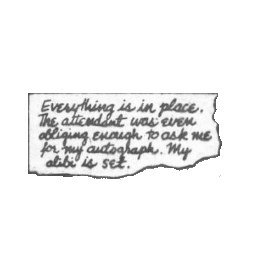 Everything is in place.
The attendant was even
obliging enough to ask me
for my autograph. My
alibi is set.